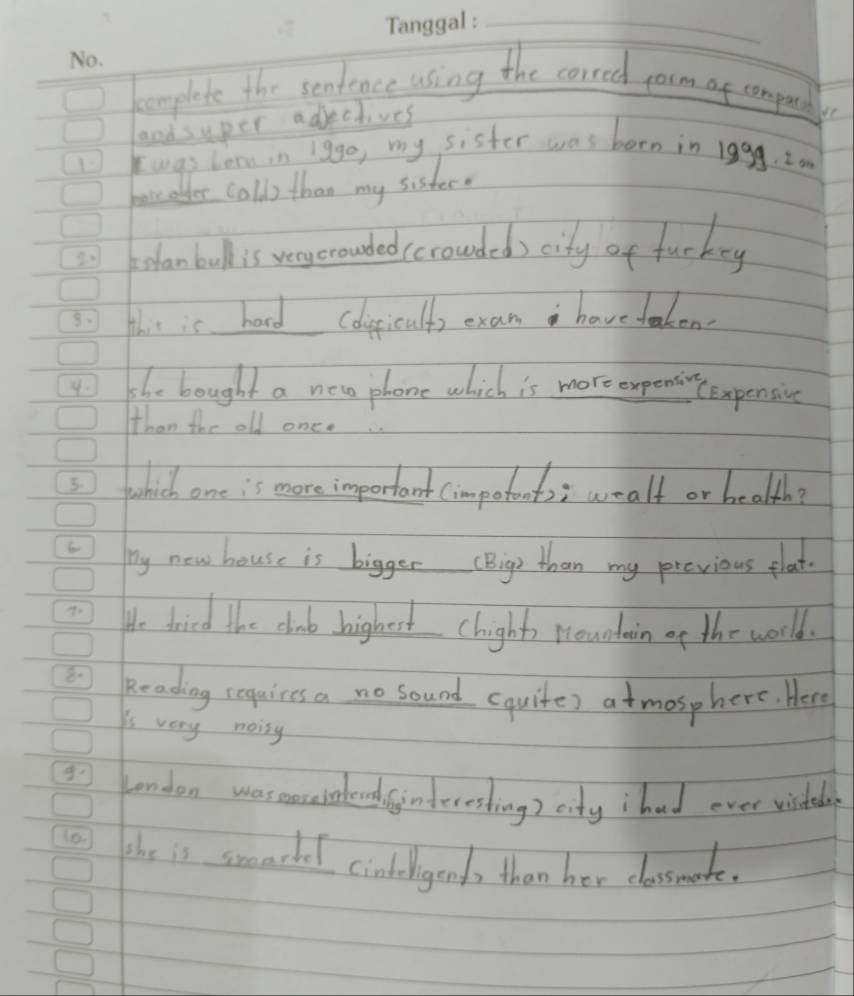 Tanggal :
No.
complete the sentence using the correct form of comparative
and super adjectives
1. I was born in 1990, my sister was born in 1999. I am
more older (old) than my sister.
2. istanbull is very crowded (crowded) city of turkey
3. this is hard (difficult) exam i have taken.
4. she bought a new phone which is more expensive (Expensive
than the old once.
5. which one is more important (impotont): wealt or health?
6. My new house is bigger (Big) than my previous flat.
7. He tried the climb highest (hight) Mountain of the world.
8. Reading requires a no sound (quite) atmosphere. Here
is very noisy
9. London was more (interesting) city i had ever visited
10. she is smarter (intelligent) than her classmate.